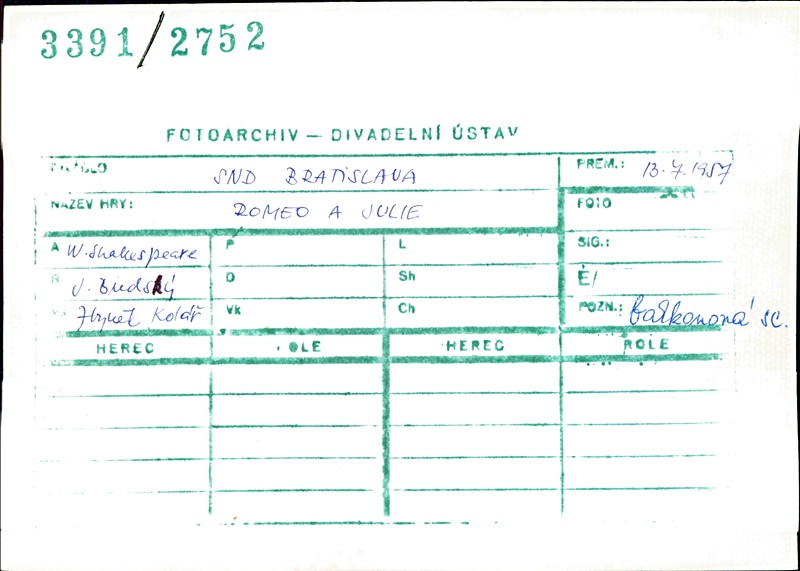 3391/2752
FOTOARCHIV — DIVADELNÍ ÚSTAV
SND BRATISLAVA PREM.: 13.7.1957
NÁZEV HRY: ROMEO A JULIE FOTO
A W. Shakespeare P L SIG.:
R J. Budský D Sh É/
Zbyněk Kolář Vk Ch POZN.: balkonová sc.
HEREC ROLE HEREC ROLE